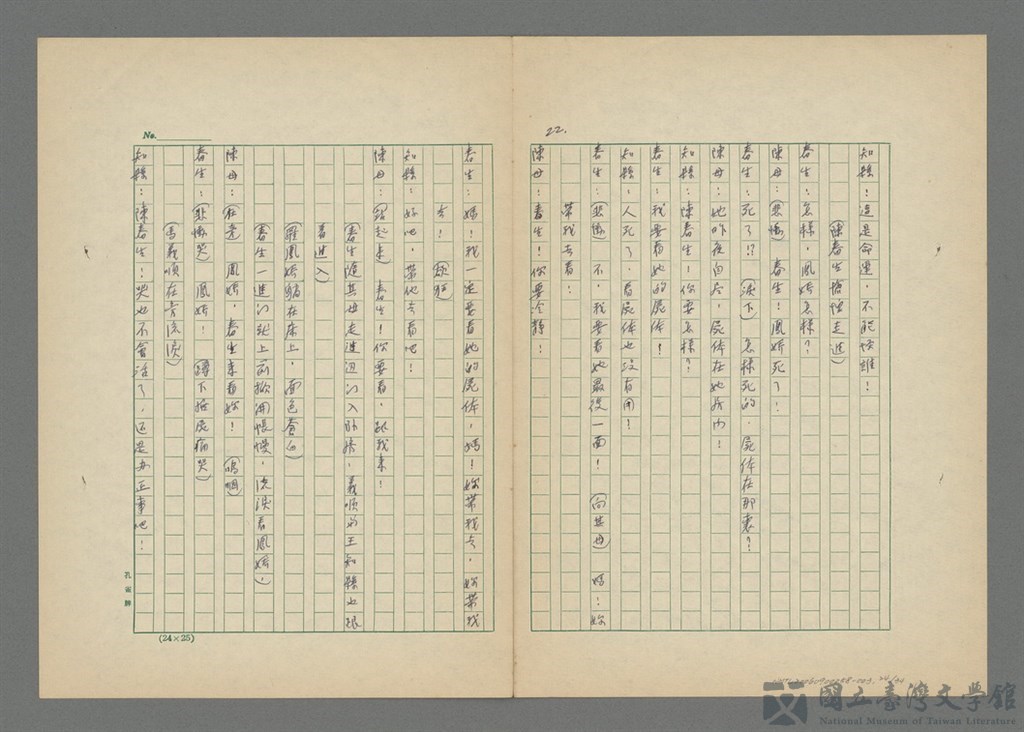 22.
知縣：這是命運，不能快雄！
（陳春生惶惶走進）
春生：怎樣，鳳嬌怎樣？
陳母：（悲慟）春生！鳳嬌死了！
春生：死了!?（淚下）怎樣死的，屍体在那裏？
陳母：她昨夜自尽，屍体在她房内！
知縣：陳春生！你要怎樣？
春生：我要看她的屍体！
知縣：人死了，看屍体也沒有用！
春生：（悲慟）不，我要看她最後一面！（向其母）媽！妳
帶我去看！
陳母：春生！你要冷靜！
No.
春生：媽！我一定要看她的屍体，媽！妳帶我去，妳帶我
去！（疑狂）
知縣：好吧，帶他去看吧！
陳母：（站起來）春生！你要看，跟我來！
（春生隨其母走進边门入卧房，義順與王知縣也跟
着進入）
（羅鳳嬌躺在床上，面色蒼白）
（春生一進门就上前掀開帳幔，流淚看鳳嬌，）
陳母：（在旁）鳳嬌，春生來看妳！（嗚咽）
春生：（悲慟哭）鳳嬌！（蹲下抱屍痛哭）
（馬義順在旁流淚）
知縣：陳春生！哭也不會活了，还是办正事吧！
(24×25)
國立臺灣文學館
National Museum of Taiwan Literature